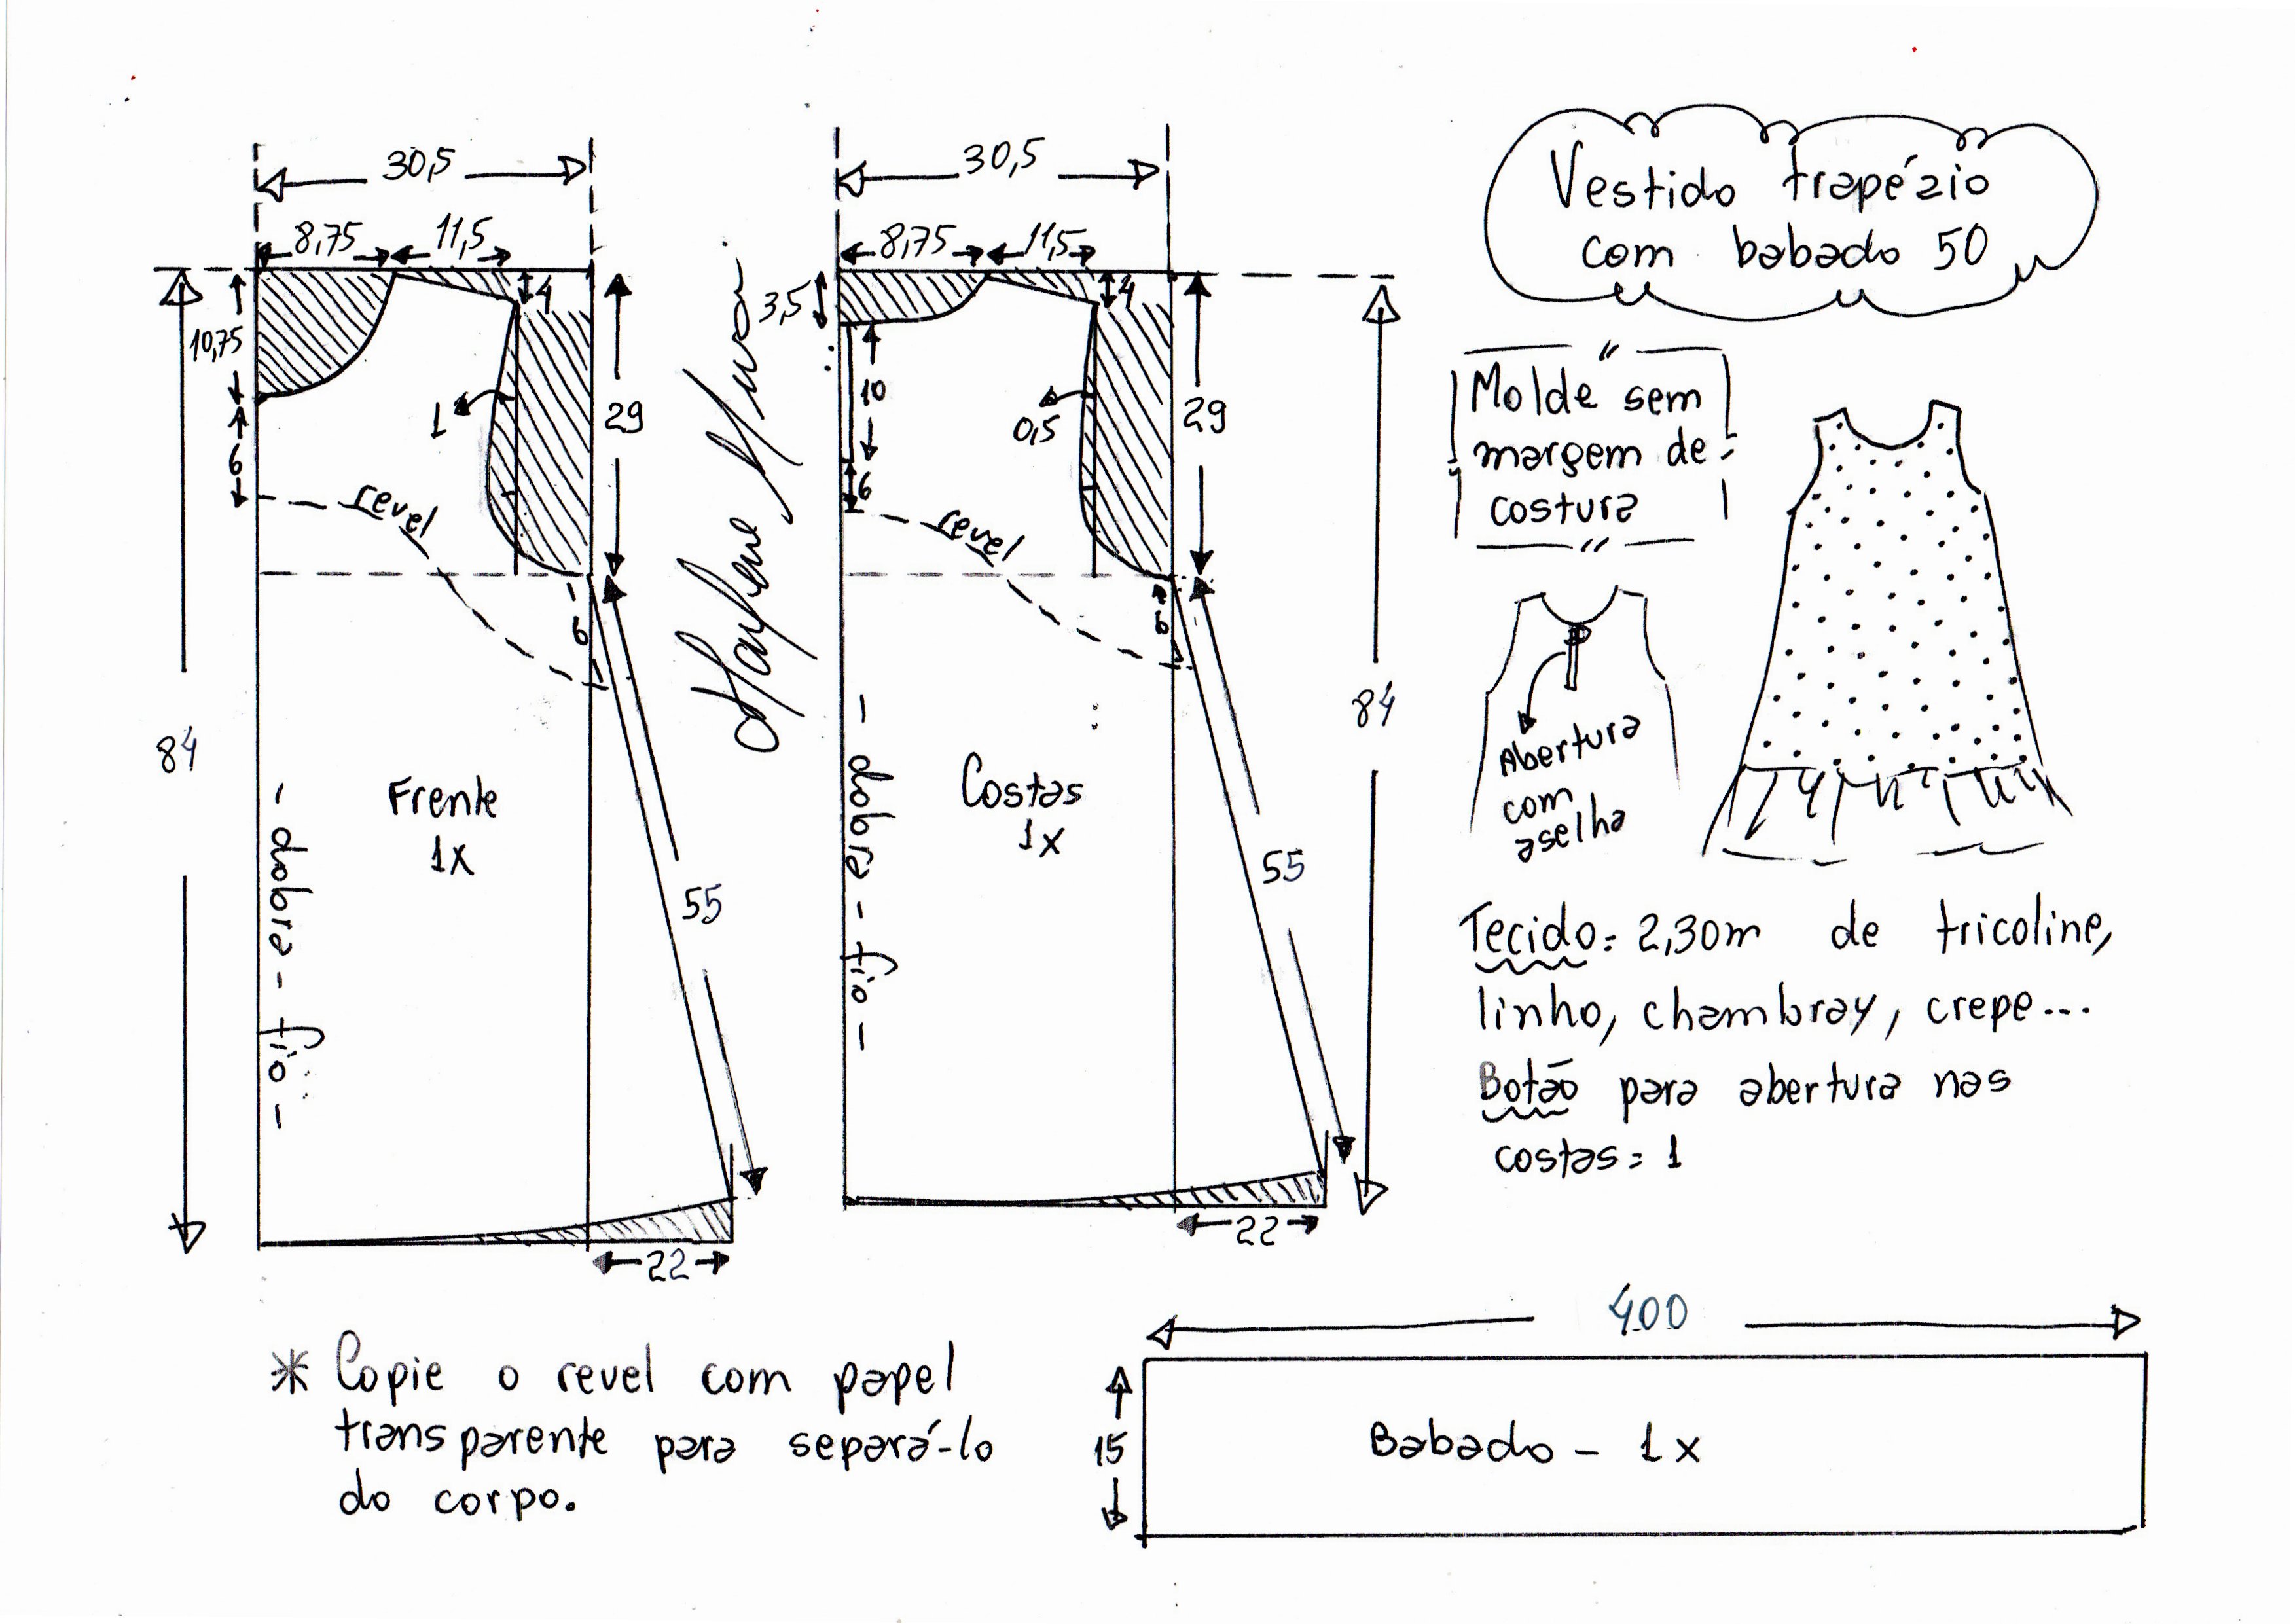 30,5
8,75 11,5
4
10,75
1
29
6
revel
6
84
Frente
1x
55
- dobra - fio -
22
Marlene Mukai
30,5
8,75 11,5
3,5
4
10
0,5
29
6
revel
6
84
Costas
1x
55
- dobra - fio -
22
Vestido trapézio
com babado 50
Molde sem
margem de
costura
Abertura
com
aselha
Tecido = 2,30m de tricoline,
linho, chambray, crepe...
Botão para abertura nas
costas = 1
* Copie o revel com papel
transparente para separá-lo
do corpo.
400
15
Babado - 1x